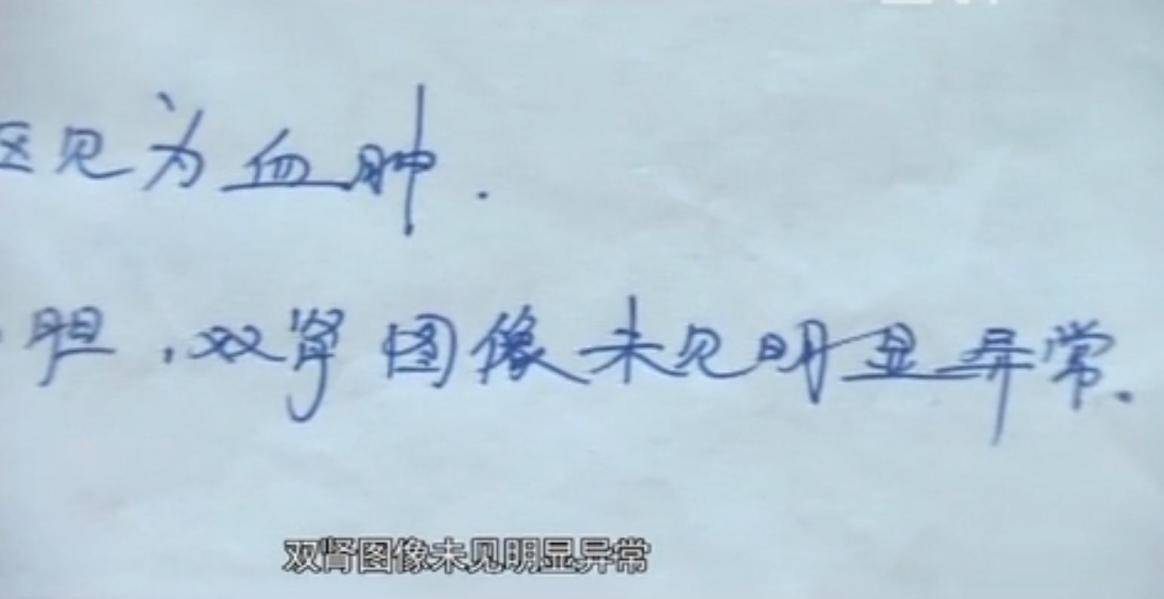 区见为血肿.
胆,双肾图像未见明显异常.
双肾图像未见明显异常